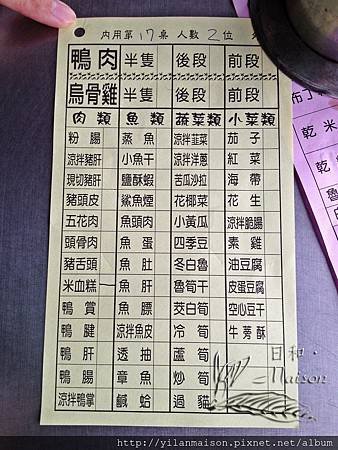 內用第17桌 人數2位
鴨肉 半隻 後段 前段
烏骨雞 半隻 後段 前段
肉類 魚類 蔬菜類 小菜類
粉腸 蒸魚 涼拌韮菜 茄子
涼拌豬肝 小魚干 涼拌洋蔥 紅菜
現切豬肝 鹽酥蝦 苦瓜沙拉 海帶
豬頭皮 鯊魚煙 花椰菜 花生
五花肉 魚頭肉 小黃瓜 涼拌脆腸
頭骨肉 魚蛋 四季豆 素雞
豬舌頭 魚肚 冬白魯 油豆腐
米血糕 魚肝 魯筍干 皮蛋豆腐
鴨賞 魚膘 茭白筍 空心豆干
鴨腱 涼拌魚皮 冷筍 牛蒡酥
鴨肝 透抽 蘆筍
鴨腸 章魚 炒筍
涼拌鴨掌 鹹蛤 過貓
布丁
乾米
乾
日和·
Maison
http://yilanmaison.pixnet.net/album